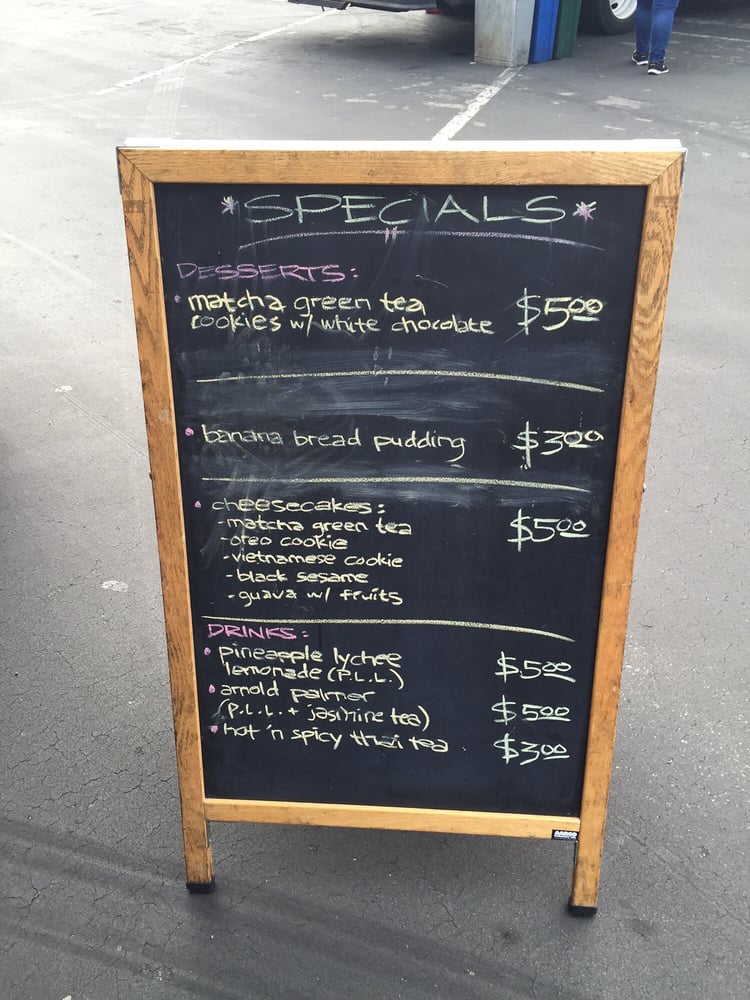 *SPECIALS*
DESSERTS:
• matcha green tea
cookies w/ white chocolate $5.00
• banana bread pudding $3.00
• cheesecakes:
-matcha green tea $5.00
-oreo cookie
-vietnamese cookie
-black sesame
-guava w/ fruits
DRINKS:
• pineapple lychee
lemonade (P.L.L.) $5.00
• arnold palmer
(P.L.L. + jasmine tea) $5.00
• hot 'n spicy thai tea $3.00
AARCO